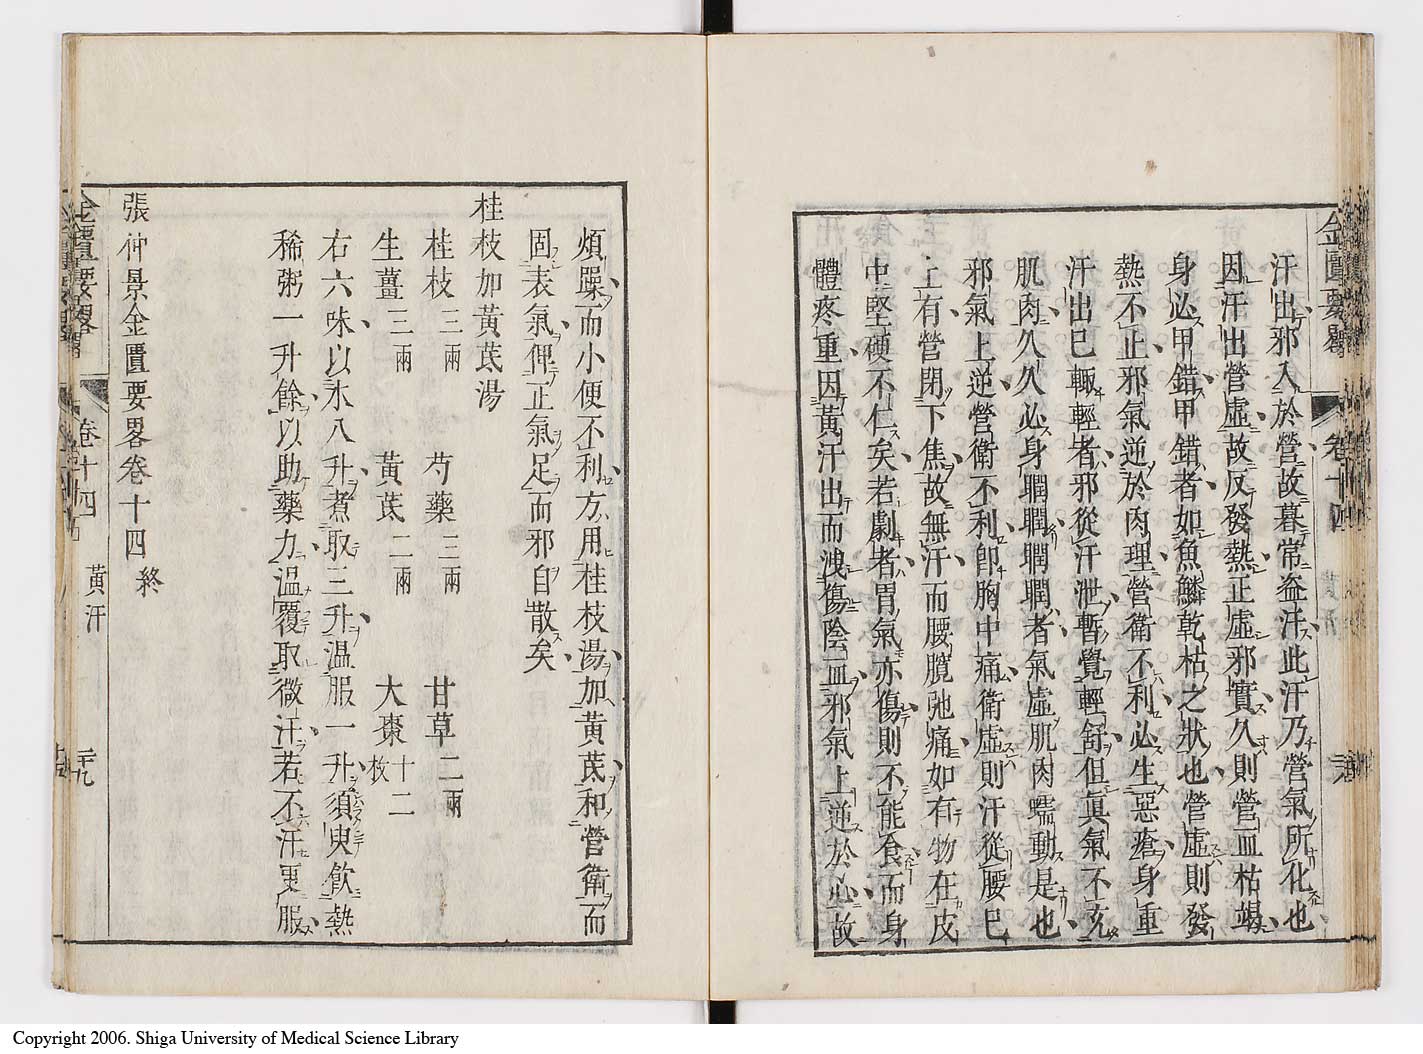 金匱要略 卷十四
汗出邪入於營故暮常盗汗此汗乃營氣所化也
因汗出營虛故反發熱正虛邪實久則營血枯竭
身必甲錯甲錯者如魚鱗乾枯之狀也營虛則發
熱不止邪氣逆於肉理營衛不利必生惡瘡身重
汗出已輒輕者邪從汗泄暫覺輕舒但真氣不充
肌肉久久必身瞤瞤瞤者氣虛肌肉蠕動是也
邪氣上逆營衛不利卽胸中痛衛虛則汗從腰已
上有營閉下焦故無汗而腰髖弛痛如有物在皮
中堅硬不仁矣若劇者胃氣亦傷則不能食而身
體疼重因黃汗出而洩傷陰血邪氣上逆於心故
煩躁而小便不利方用桂枝湯加黃茋和營衛而
固表氣俾正氣足而邪自散矣
桂枝加黃茋湯
桂枝三兩 芍藥三兩 甘草二兩
生薑三兩 黃茋二兩 大棗十二枚
右六味以水八升煮取三升温服一升須臾飲熱
稀粥一升餘以助藥力温覆取微汗若不汗更服
張仲景金匱要畧卷十四 終
金匱要略 卷十四 黃汗 二十九
Copyright 2006. Shiga University of Medical Science Library